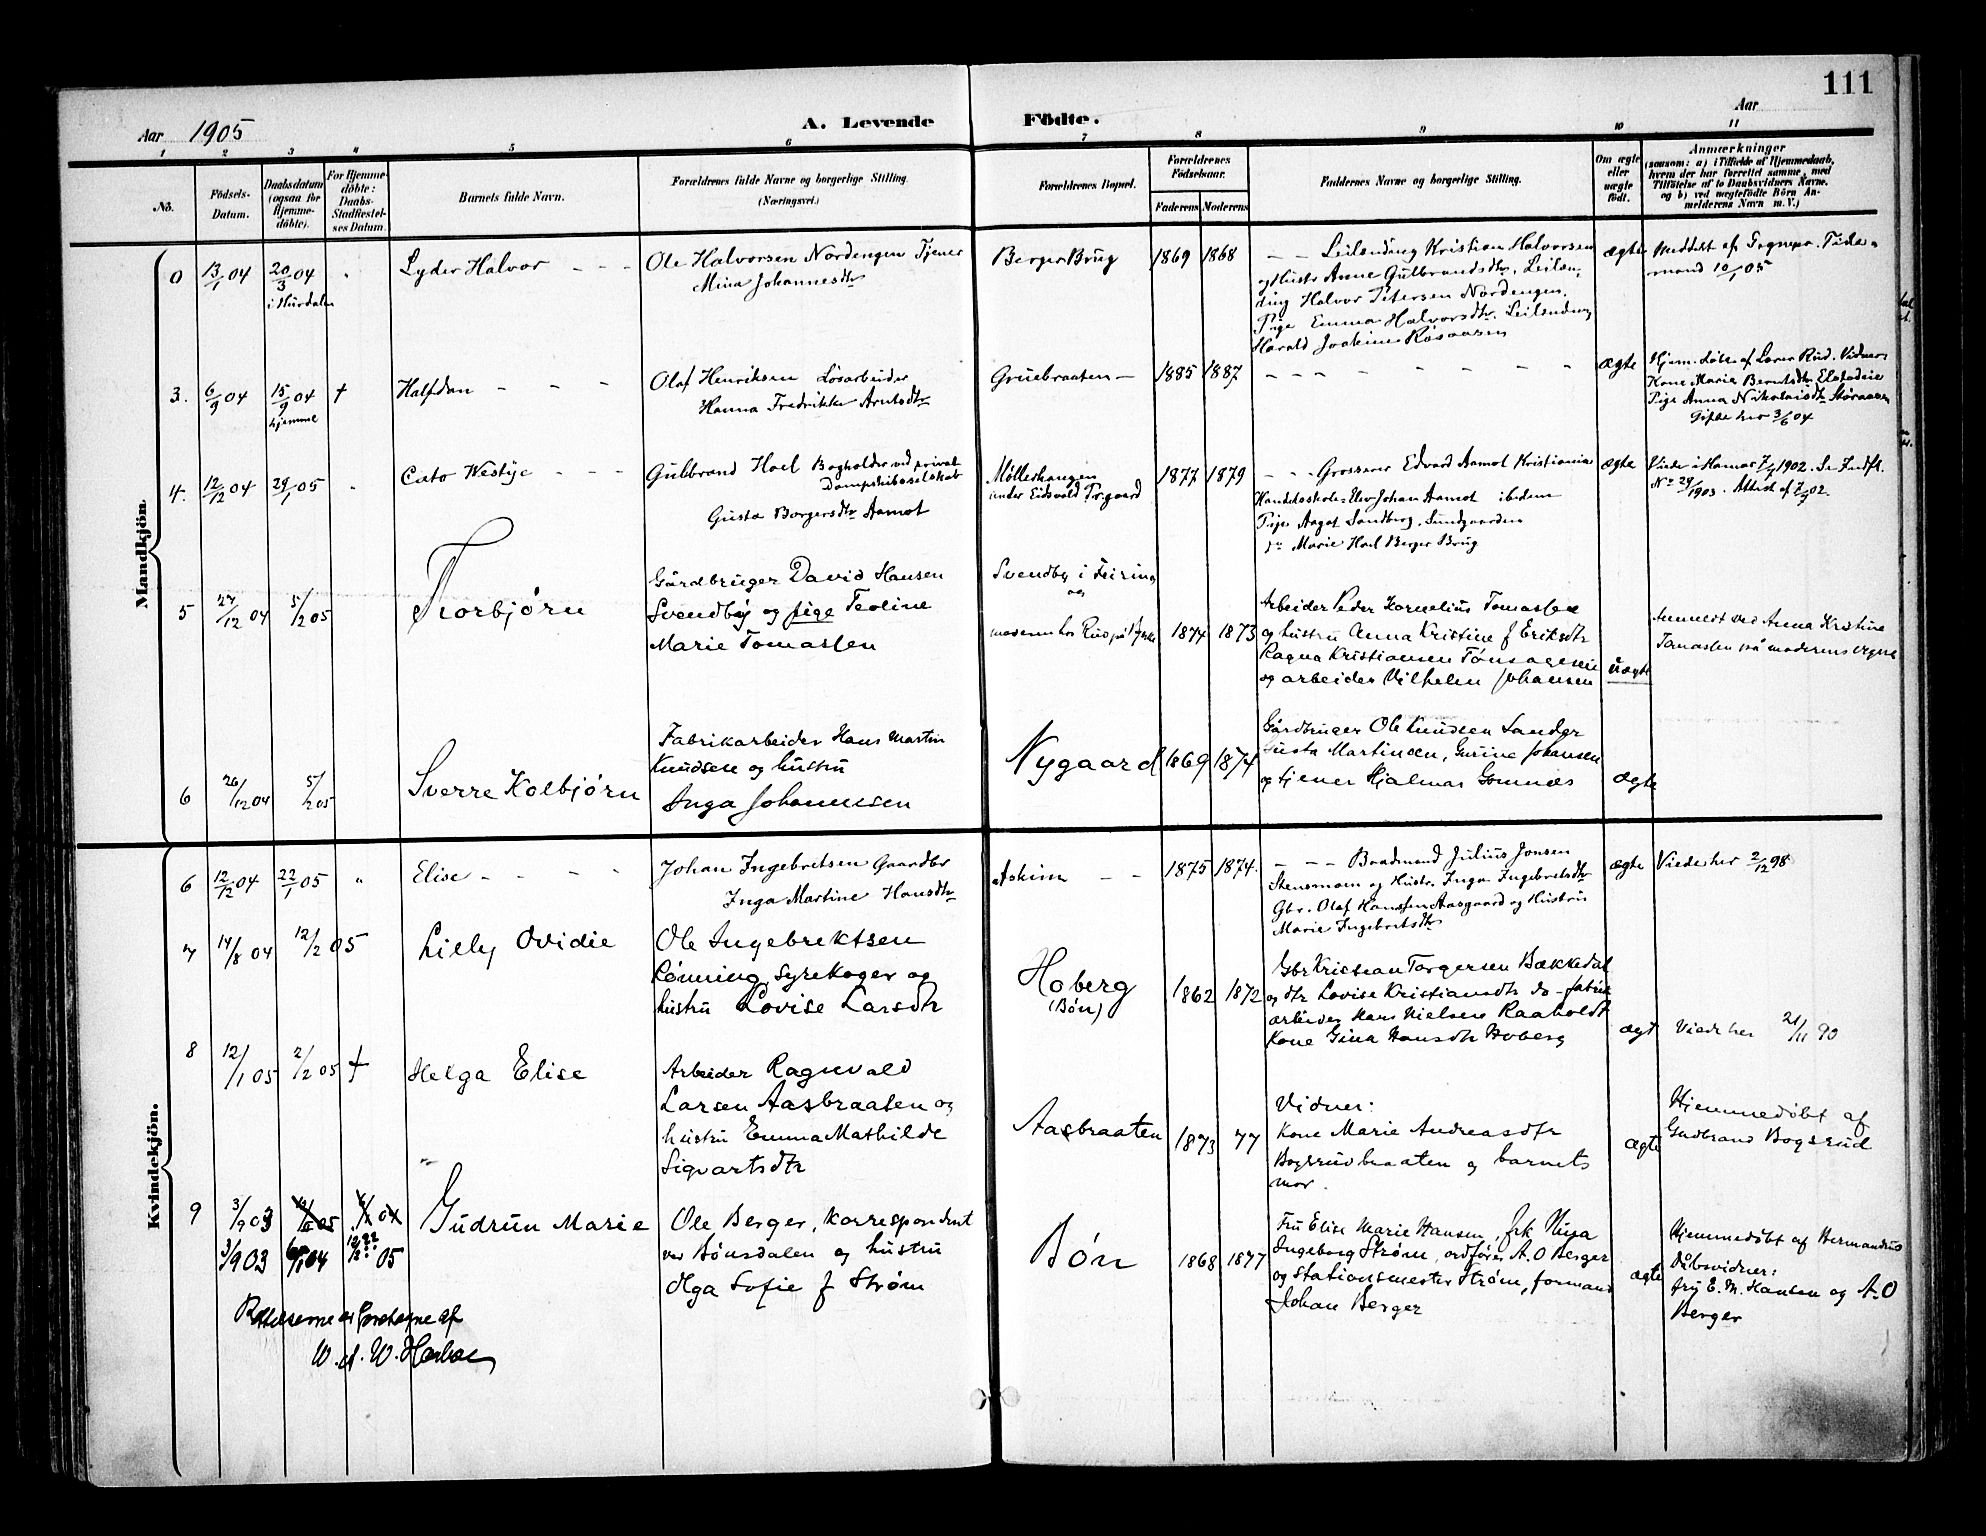 111
Aar 1905
A. Levende Födte.
Aar
1 2 3 4 5 6 7 8 9 10 11
No.
Födsels-Datum.
Daabsdatum (ogsaa for Hjemme-döbte).
For Hjemme-döbte: Daabs-Stadfæstel-ses Datum.
Barnets fulde Navn.
Forældrenes fulde Navne og borgerlige Stilling. (Næringsvei.)
Forældrenes Bopæl.
Forældrenes Födselsaar.
Faderens Moderens
Faddernes Navne og borgerlige Stilling.
Om ægte eller uægte födt.
Anmærkninger
(saasom: a) i Tilfælde af Hjemmedaab,
hvem der har forrettet samme, med
Tilföielse af to Daabsvidners Navne,
og b) ved uægtefödte Börn An-
melderens Navn m. V.)
Mandkjön.
0 13/1 04 20/3 04 i Hurdalen
Lyder Halvor
Ole Halvorsen Nordengen Tjener
Mina Johannesdtr
Berger Brug 1869 1868
Leilending Kristian Halvorsen
og Hustr Anne Gulbrandsdtr. Leilen,
ding Halvor Petersen Nordengen.
Pige Emma Halvorsdtr. Leilending
Harald Joakim Røsaasen
ægte
Meddelt af Sognepr. Tide-
mand 10/1 05
3. 6/9 04 15/9 04 hjemme +
Halfdan
Olaf Henriksen Løsarbeider
Hanna Fredrikke Arntsdtr
Gruebraaten 1885 1887
ægte
Hjem. døbt af Lærer Rud. Vidner:
Kone Marie Berntsdtr
Pige Anna Nikolaisdtr Støraasen
Gifte her 3/6 04
4. 12/12 04 29/1 05
Cato Westye
Gulbrand Hoel Bogholder ved privat
Dampskibsselskab
Gusta Borgersdtr Aamot
Møllerhaugen
under Eidsvold Prgaard 1877 1879
Grosserer Edvard Aamot Kristiania
Handelsskole-Elev Johan Aamot ibidem
Pige Aagot Sandberg, Sundgaarden
Marie Hoel Berger Brug
ægte
Viede i Hamar 7/7 1902. Se Indft.
No 29/1903. Attest af 7/7 02.
5 27/12 04 5/2 05
Torbjørn
Gårdbruger David Hansen
Svendby og pige Teoline
Marie Tomassen
Svendby i Feiring
og
moderen hos 1874 1873
Arbeider Peder Kornelius Tomassen
og hustru Anna Kristine f Eriksdtr
Ragna Kristiansen
og arbeider Vilhelm Johansen
uægte
Anmeldt ved Anna Kristine
Tomassen på moderens vegne
6 26/12 04 5/2 05
Sverre Kolbjørn
Fabrikarbeider Hans Martin
Knudsen og hustru
Inga Johannesen
Nygaard 1869 1874
Gårdbruger Ole Knudsen Sander
Gusta Martinsen, Gurine Johansen
og tjener Hjalmar Gomnæs
ægte
Kvindekjön.
6 12/12 04 22/1 05
Elise
Johan Ingebretsen Gaardbr
Inga Martine Hansdtr
Askim 1875 1874.
Baadmand Julius Jonsen
Stensmoen og Hustr. Inga Ingebretsdtr
Gbr. Olaf Hanssen Aasgaard og Hustru
Marie Ingebretsdtr
ægte
Viede her 2/12 98
7 14/8 04 12/2 05
Lilly Ovidie
Ole Ingebrektsen
Rønning, Syrekoger og
hustru Lovise Larsdtr
Hoberg
(Bøn) 1862 1872
Gbr Kristian Torgersen Bækkedal
og dtr Lovise Kristiansdtr do - fabrik
arbeider Hans Nielsen Raaholdt
Kone Gina Hansdtr Hoberg
ægt
Viede her 21/11 90
8 12/1 05 2/2 05 +
Helga Elise
Arbeider Ragnvald
Larsen Aasbraaten og
hustru Emma Mathilde
Sigvartsdtr
Aasbraaten 1873 77
Vidner:
Kone Marie Andreasdtr
Bogsrudbraaten og barnets
mor.
ægte
Hjemmedøbt af
Gudbrand Bogsrud
9 3/9 03
3/9 03 05
Gudrun Marie
Ole Berger, korrespondent
ved Bønsdalen og hustru
Olga Sofie f Strøm
Bøn 1868 1877
Fru Elise Marie Hansen, frk
Ingeborg Strøm, ordfører A. O Berger
og Stationsmester Strøm, formand
Johan Berger
ægte
Hjemmedøbt af Hermandrus
Dåbsvidner:
fru E. M. Hansen og A. O
Berger
Rettelserne er foretagne af